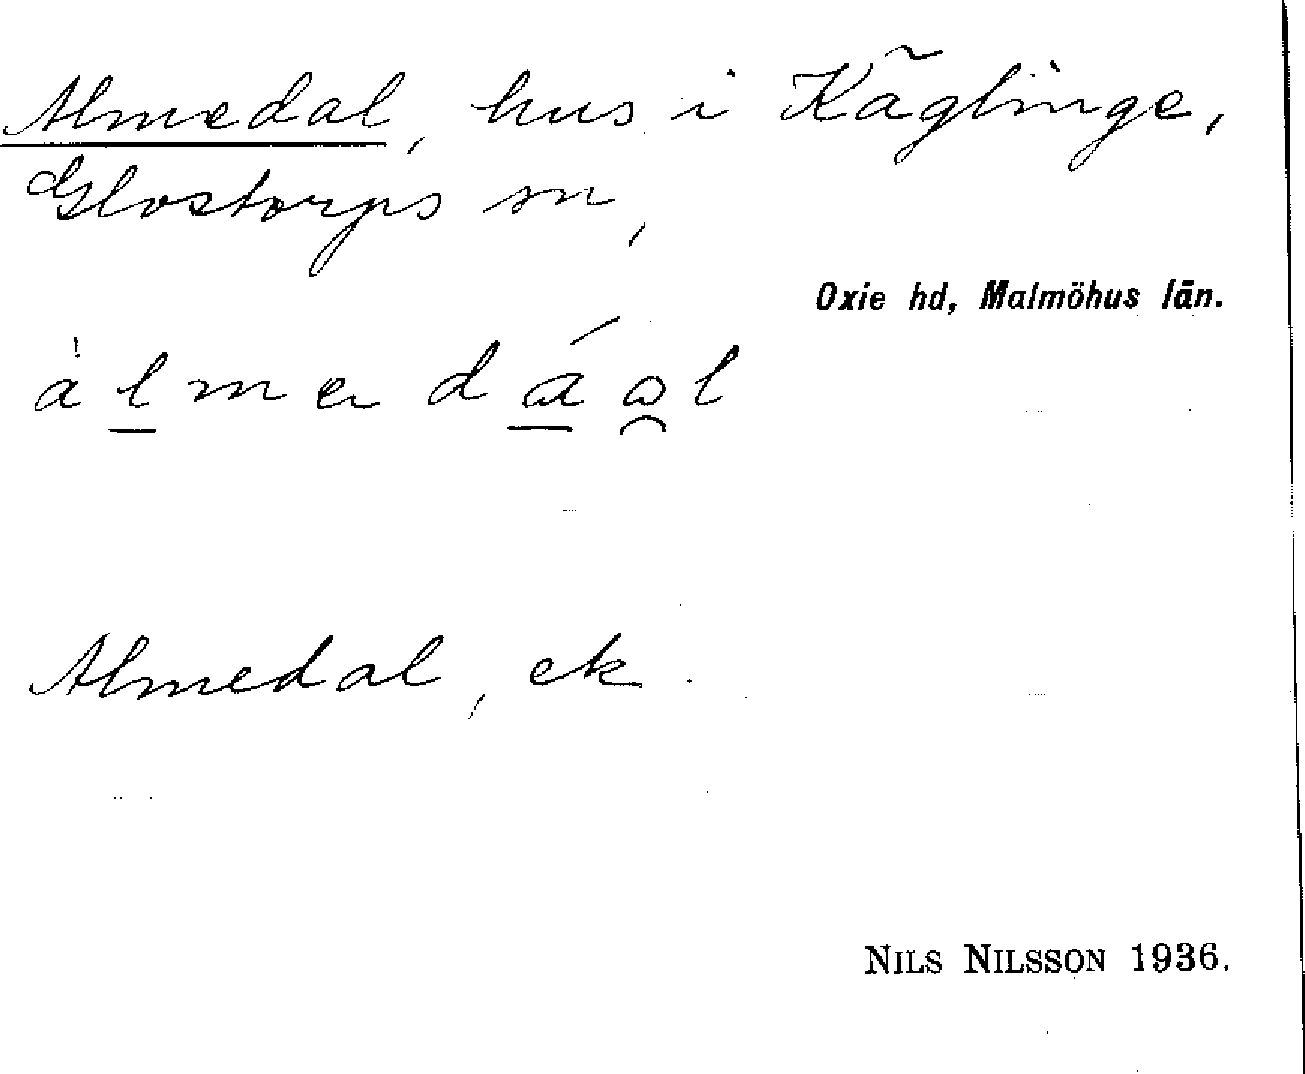 Almedal, hus i Käglinge,
Glostorps sn,
Oxie hd, Malmöhus län.
Almedal, ek.
NILS NILSSON 1936.